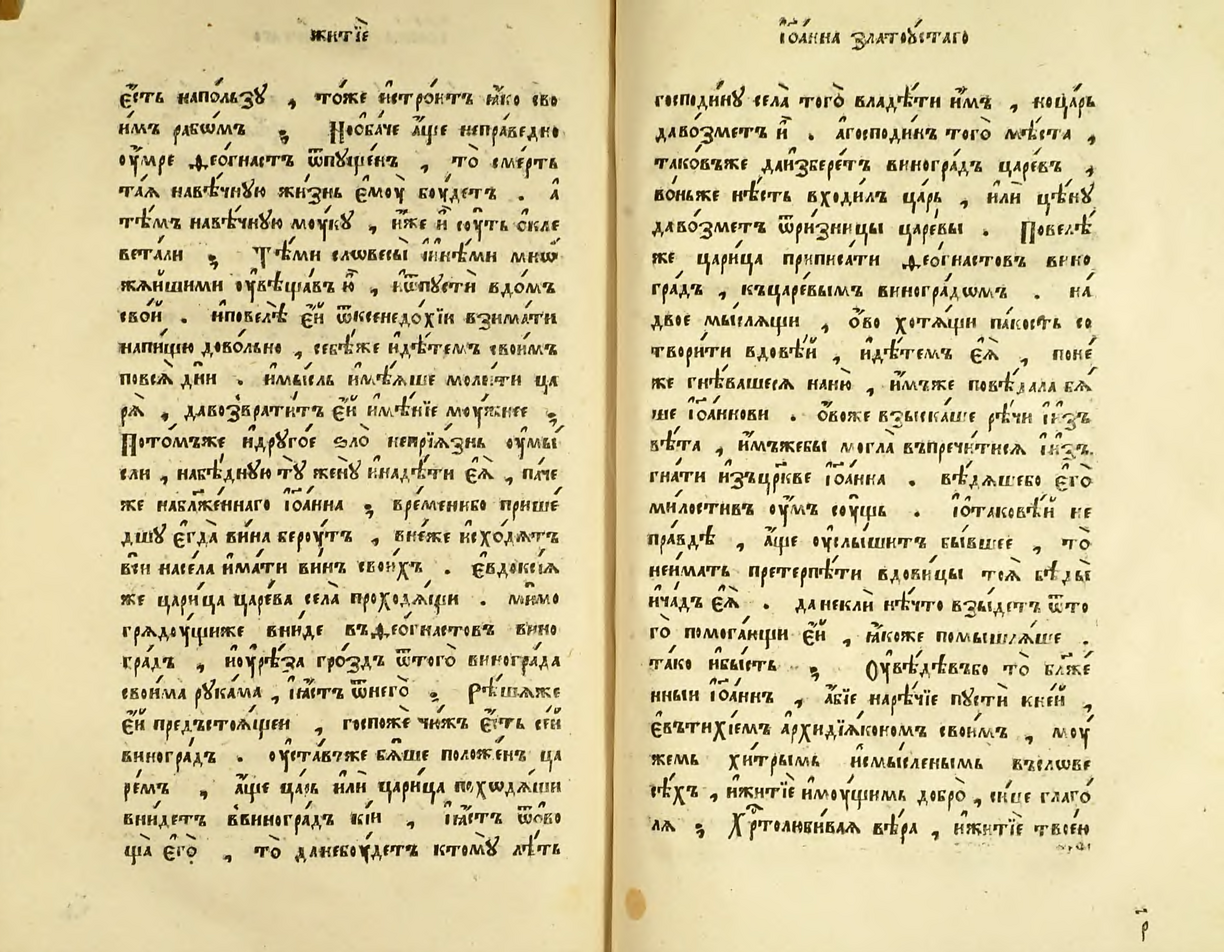 житїе
є҆́сть напо́льзꙋ , то́же и҆стро́итъ ꙗ҆́ко сво
и҆́мъ рабѡ́мъ ; Но̑ба́че а҆́ще непра́ведно
оу҆́мре ѳео́гнастъ ѿпꙋ́щенъ , то̀ сме́рть
та́ѧ навѣ́чнꙋю жи́знь є҆мꙋ̀ бꙋ́детъ . а҆
тѣ́мъ навѣ́чнꙋю мꙋ́кꙋ , и҆́же и҆̀ сꙋ́ть ѻ҆кле
вета́ли ; Тѣ́ми словесы̀ и҆и҆нѣ́ми мнѡ
жа́йшими оу҆вѣща́въ ю҆̀ , и҆ѿпꙋстѝ вдо́мъ
сво́й . и҆повелѣ̀ є҆́й ѿксенедохі́и взима́ти
напи́щꙋ дово́льно , себѣ́же и҆дѣ́темъ свои́мъ
повсѧ̀ дни̑ . и҆мы́сль и҆мѣ́ѧше моли́ти ца
рѧ̀ , давозврати́тъ є҆́й и҆мѣ́нїе мꙋ́жнее ;
Пото́мъже и҆дрꙋго́е ѕло̀ непрїѧ́знь оу҆мы́
сли , набѣ́днꙋю тꙋ̀ женꙋ̀ и҆надѣ́ти є҆ѧ̀ , па́че
же наблаже́ннаго і҆ѡа́нна ; вре́менибо прише́
дшꙋ є҆гда̀ вина̀ берꙋ́тъ , вне́же и҆схо́дѧтъ
всѝ насе́ла и҆ма́ти ви́нъ свои́хъ . є҆ѵдоксі́ѧ
же цари́ца царе́ва се́ла проходѧ́щи . ми́мо
грѧдꙋ́щиже вни́де въѳео́гнастовъ вино
гра́дъ , и҆оу҆рѣ́за гро́здъ ѿтого̀ виногра́да
свои́ма рꙋка́ма , і҆ꙗ҆́стъ ѿнего̀ . Рѣ́шаже
є҆́й предъстоѧ́щеи , госпожѐ чи́жъ є҆́сть се́й
виногра́дъ . оу҆ста́въже бѧ́ше положе́нъ ца
ре́мъ , а҆́ще ца́рь и҆лѝ цари́ца похѡдѧ́щи
вни́детъ ввиногра́дъ кі́и , і҆ꙗ҆́стъ ѿѻво
ща̀ є҆го̀ , то̀ данебꙋ́детъ ктомꙋ̀ лѣ́ть
і҆ѡа́нна златоꙋ́стаго
господи́нꙋ села̀ того̀ владѣ́ти и҆́мъ , ноца́рь
давозме́тъ и҆̀ . а҆господи́нъ того̀ мѣ́ста ,
тако́въже даи҆збере́тъ виногра́дъ царе́въ ,
во́ньже нѣ́сть входи́лъ ца́рь , и҆лѝ цѣ́нꙋ
давозме́тъ ѿри́зницы царе́вы . Повелѣ́
же цари́ца приписа́ти ѳео́гнастовъ вино
гра́дъ , къца́ревымъ виногра́дѡмъ . на́
двое мы́слѧщи , ѻ҆́во хотѧ́щи па́кость со
твори́ти вдови́цѣ , и҆дѣ́темъ є҆ѧ̀ , поне́
же гнѣ́вашесѧ наню̀ , и҆́мъже повѣ́дала бѧ́
ше і҆ѡа́ннови . ѻ҆́воже взыска́ше рѣ́чи і҆нзъ
вѣ́та , и҆́мъжебы могла̀ въпречи́тисѧ і҆и҆з
гна́ти и҆зъцр҃кве і҆ѡа́нна . вѣ́дѧшебо є҆го̀
ми́лостивъ оу҆́мъ сꙋ́щь . і҆отако́вѣй не
пра́вдѣ , а҆́ще оу҆слы́шитъ бы́вшее , то̀
неи́мать претерпѣ́ти вдови́цы тоѧ̀ бѣды̀
и҆ча́дъ є҆ѧ̀ . данеклѝ нѣ́что взы́детъ ѿто
го̀ помога́ющи є҆́й , ꙗ҆́коже помышлѧ́ше .
та́ко и҆бы́сть ; Оу҆вѣ́дѣвъбо то̀ бл҃же́
нныи і҆ѡа́ннъ , а҆́бїе наре́чїе пꙋстѝ кне́й ,
є҆ѵти́хїемъ а҆рхидїа́кономъ свои́мъ , мꙋ́
жемъ хи́трымъ и҆смы́сленымъ въсло́ве
се́хъ , и҆житїѐ и҆мꙋ́щимъ добро̀ , си́це глаго́
лѧ ; Хр҃толюби́ваѧ вѣ́ра , и҆житїѐ твоею̀
р҃